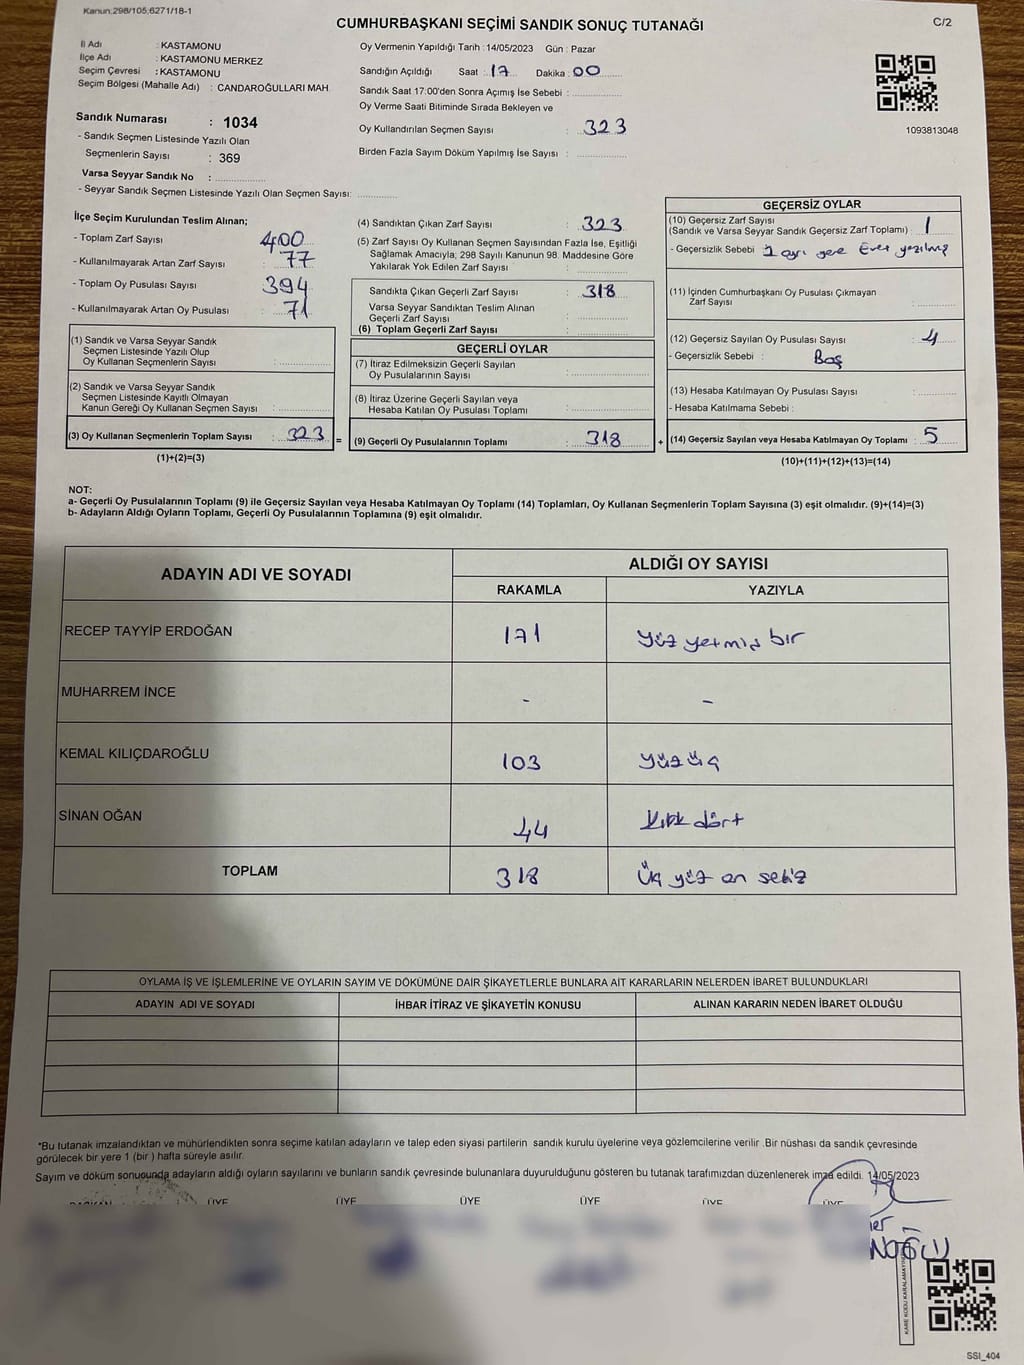 Kanun:298/105;6271/18-1
CUMHURBAŞKANI SEÇİMİ SANDIK SONUÇ TUTANAĞI
C/2
İl Adı : KASTAMONU
İlçe Adı : KASTAMONU MERKEZ
Seçim Çevresi : KASTAMONU
Seçim Bölgesi (Mahalle Adı) : CANDAROĞULLARI MAH.
Sandık Numarası : 1034
- Sandık Seçmen Listesinde Yazılı Olan
Seçmenlerin Sayısı : 369
Varsa Seyyar Sandık No :
- Seyyar Sandık Seçmen Listesinde Yazılı Olan Seçmen Sayısı:
Oy Vermenin Yapıldığı Tarih : 14/05/2023 Gün : Pazar
Sandığın Açıldığı Saat : 17 Dakika : 00
Sandık Saat 17:00'den Sonra Açımış İse Sebebi :
Oy Verme Saati Bitiminde Sırada Bekleyen ve
Oy Kullandırılan Seçmen Sayısı : 323
Birden Fazla Sayım Döküm Yapılmış İse Sayısı :
1093813048
İlçe Seçim Kurulundan Teslim Alınan;
- Toplam Zarf Sayısı 400
- Kullanılmayarak Artan Zarf Sayısı : 77
- Toplam Oy Pusulası Sayısı 394
- Kullanılmayarak Artan Oy Pusulası : 71
(1) Sandık ve Varsa Seyyar Sandık
Seçmen Listesinde Yazılı Olup
Oy Kullanan Seçmenlerin Sayısı :
(2) Sandık ve Varsa Seyyar Sandık
Seçmen Listesinde Kayıtlı Olmayan
Kanun Gereği Oy Kullanan Seçmen Sayısı :
(3) Oy Kullanan Seçmenlerin Toplam Sayısı : 323 =
(1)+(2)=(3)
(4) Sandıktan Çıkan Zarf Sayısı : 323
(5) Zarf Sayısı Oy Kullanan Seçmen Sayısından Fazla İse, Eşitliği
Sağlamak Amacıyla; 298 Sayılı Kanunun 98. Maddesine Göre
Yakılarak Yok Edilen Zarf Sayısı :
Sandıkta Çıkan Geçerli Zarf Sayısı : 318
Varsa Seyyar Sandıktan Teslim Alınan
Geçerli Zarf Sayısı :
(6) Toplam Geçerli Zarf Sayısı :
GEÇERLİ OYLAR
(7) İtiraz Edilmeksizin Geçerli Sayılan
Oy Pusulalarının Sayısı :
(8) İtiraz Üzerine Geçerli Sayılan veya
Hesaba Katılan Oy Pusulası Toplamı :
(9) Geçerli Oy Pusulalarının Toplamı : 318 +
GEÇERSİZ OYLAR
(10) Geçersiz Zarf Sayısı
(Sandık ve Varsa Seyyar Sandık Geçersiz Zarf Toplamı) : 1
- Geçersizlik Sebebi : 2 ayrı yere Evet yazılmış
(11) İçinden Cumhurbaşkanı Oy Pusulası Çıkmayan
Zarf Sayısı :
(12) Geçersiz Sayılan Oy Pusulası Sayısı : 4
- Geçersizlik Sebebi : Boş
(13) Hesaba Katılmayan Oy Pusulası Sayısı :
- Hesaba Katılmama Sebebi :
(14) Geçersiz Sayılan veya Hesaba Katılmayan Oy Toplamı : 5
(10)+(11)+(12)+(13)=(14)
NOT:
a- Geçerli Oy Pusulalarının Toplamı (9) ile Geçersiz Sayılan veya Hesaba Katılmayan Oy Toplamı (14) Toplamları, Oy Kullanan Seçmenlerin Toplam Sayısına (3) eşit olmalıdır. (9)+(14)=(3)
b- Adayların Aldığı Oyların Toplamı, Geçerli Oy Pusulalarının Toplamına (9) eşit olmalıdır.
ADAYIN ADI VE SOYADI
ALDIĞI OY SAYISI
RAKAMLA YAZIYLA
RECEP TAYYİP ERDOĞAN 171 Yüz yetmiş bir
MUHARREM İNCE - -
KEMAL KILIÇDAROĞLU 103 Yüz üç
SİNAN OĞAN 44 Kırk dört
TOPLAM 318 Üç yüz on sekiz
OYLAMA İŞ VE İŞLEMLERİNE VE OYLARIN SAYIM VE DÖKÜMÜNE DAİR ŞİKAYETLERLE BUNLARA AİT KARARLARIN NELERDEN İBARET BULUNDUKLARI
ADAYIN ADI VE SOYADI İHBAR İTİRAZ VE ŞİKAYETİN KONUSU ALINAN KARARIN NEDEN İBARET OLDUĞU
*Bu tutanak imzalandıktan ve mühürlendikten sonra seçime katılan adayların ve talep eden siyasi partilerin sandık kurulu üyelerine veya gözlemcilerine verilir .Bir nüshası da sandık çevresinde
görülecek bir yere 1 (bir ) hafta süreyle asılır.
Sayım ve döküm sonucunda adayların aldığı oyların sayılarını ve bunların sandık çevresinde bulunanlara duyurulduğunu gösteren bu tutanak tarafımızdan düzenlenerek imza edildi. 14/05/2023
BAŞKAN ÜYE ÜYE ÜYE ÜYE ÜYE ÜYE
SSI_404